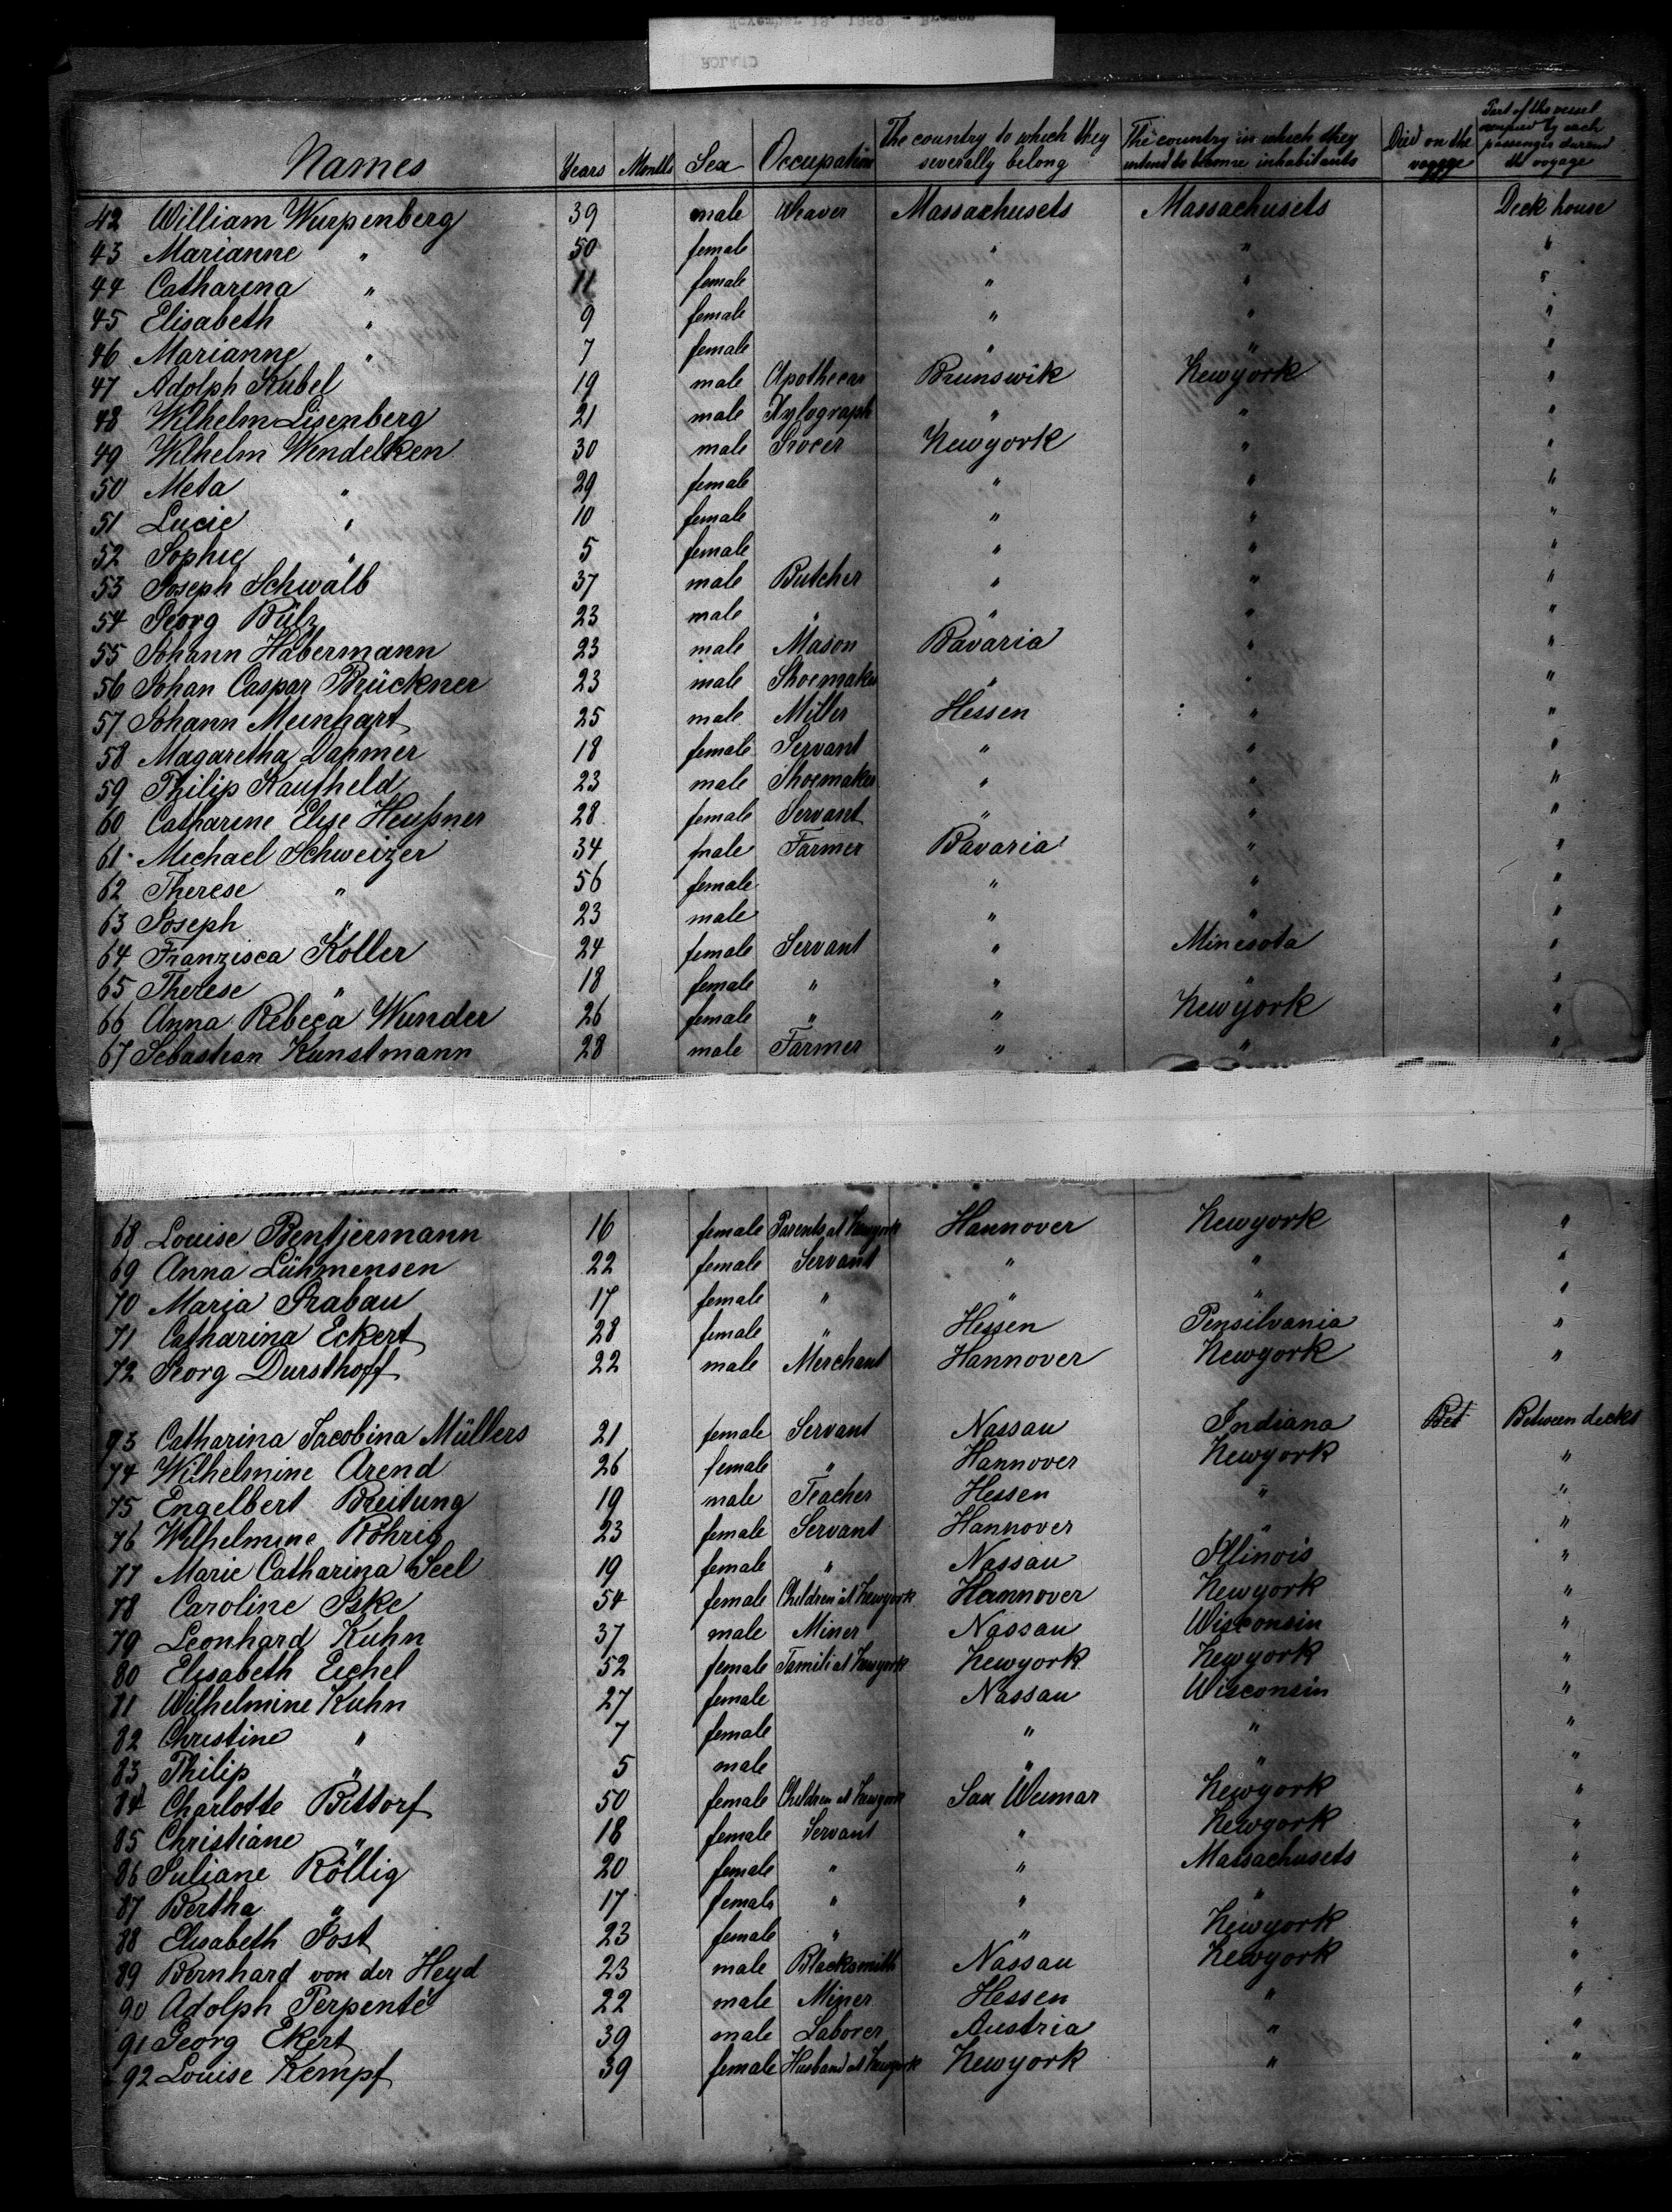 November 19, 1859 - Bremen
ROLAND
Names Years Months Sex Occupation The country to which they severally belong The country in which they intend to become inhabitants Died on the voyage Part of the vessel occupied by each passenger durend the voyage
42 William Wurpenberg 39 male Weaver Massachusets Massachusets Deck house
43 Marianne " 50 female " " "
44 Catharina " 11 female " " "
45 Elisabeth " 9 female " " "
46 Marianne " 7 female " " "
47 Adolph Kubel 19 male Apothecar Brunswik Newyork "
48 Wilhelm Lisenberg 21 male Xylograph " " "
49 Wilhelm Wendelken 30 male Grocer Newyork " "
50 Meta " 29 female " " "
51 Lucie " 10 female " " "
52 Sophie " 5 female " " "
53 Joseph Schwalb 37 male Butcher " " "
54 Georg Bülz 23 male " " " "
55 Johann Habermann 23 male Mason Bavaria " "
56 Johan Caspar Brückner 23 male Shoemaker " " "
57 Johann Meinhart 25 male Miller Hessen " "
58 Magaretha Dahmer 18 female Servant " " "
59 Philip Kaufheld 23 male Shoemaker " " "
60 Catharine Elise Heußner 28 female Servant " " "
61 Michael Schweizer 34 male Farmer Bavaria " "
62 Therese " 56 female " " "
63 Joseph " 23 male " " "
64 Franzisca Koller 24 female Servant " Minesota "
65 Therese " 18 female " " " "
66 Anna Rebeca Wunder 26 female " " Newyork "
67 Sebastian Kunstmann 28 male Farmer " " "
68 Louise Bentjermann 16 female Parents at Newyork Hannover Newyork "
69 Anna Lühmensen 22 female Servant " " "
70 Maria Grabau 17 female " " " "
71 Catharina Eckert 28 female " Hessen Pensilvania "
72 Georg Dursthoff 22 male Merchant Hannover Newyork "
93 Catharina Jacobina Müllers 21 female Servant Nassau Indiana Bet Between decks
74 Wilhelmine Arend 26 female " Hannover Newyork "
75 Engelbert Breitung 19 male Teacher Hessen " "
76 Wilhelmine Röhrig 23 female Servant Hannover " "
77 Marie Catharina Seel 19 female " Nassau Illinois "
78 Caroline Iske 54 female Children at Newyork Hannover Newyork "
79 Leonhard Kuhn 37 male Miner Nassau Wisconsin "
80 Elisabeth Eichel 52 female Famili at Newyork Newyork Newyork "
81 Wilhelmine Kuhn 27 female Nassau Wisconsin "
82 Christine " 7 female " " "
83 Philip " 5 male " " "
84 Charlotte Bittorf 50 female Children at Newyork Sax Weimar Newyork "
85 Christiane " 18 female Servant " Newyork "
86 Juliane Röllig 20 female " " Massachusets "
87 Bertha " 17 female " " " "
88 Elisabeth Jost 23 female " " Newyork "
89 Bernhard von der Heyd 23 male Blacksmith Nassau Newyork "
90 Adolph Perpenté 22 male Miner Hessen " "
91 Georg Ekert 39 male Laborer Austria " "
92 Louise Kempf 39 female Husband at Newyork Newyork " "